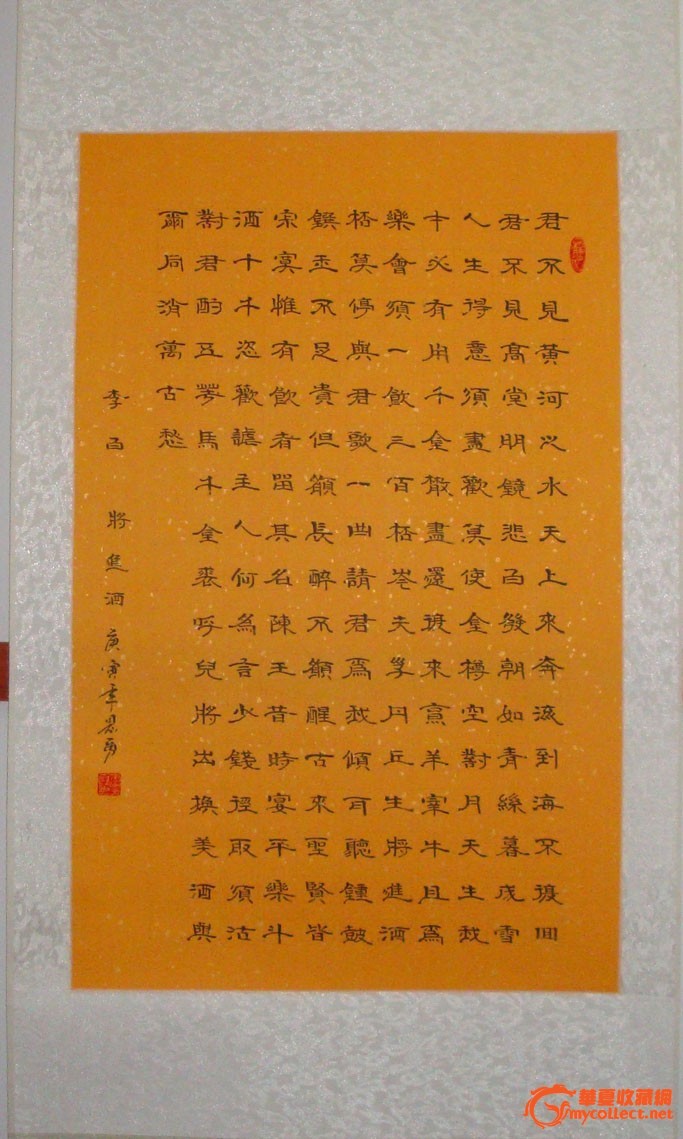 君不見黃河之水天上來奔流到海不復回
君不見高堂明鏡悲白發朝如青絲暮成雪
人生得意須盡歡莫使金樽空對月天生我
才必有用千金散盡還復來烹羊宰牛且為
樂會須一飲三百杯岑夫子丹丘生將進酒
杯莫停與君歌一曲請君為我傾耳聽鍾鼓
饌玉不足貴但願長醉不願醒古來聖賢皆
寂寞惟有飲者留其名陳王昔時宴平樂斗
酒十千恣歡謔主人何為言少錢徑取須沽
對君酌五花馬千金裘呼兒將出換美酒與
爾同消萬古愁
李白 將進酒 庚寅年
華夏收藏網
mycollect.net